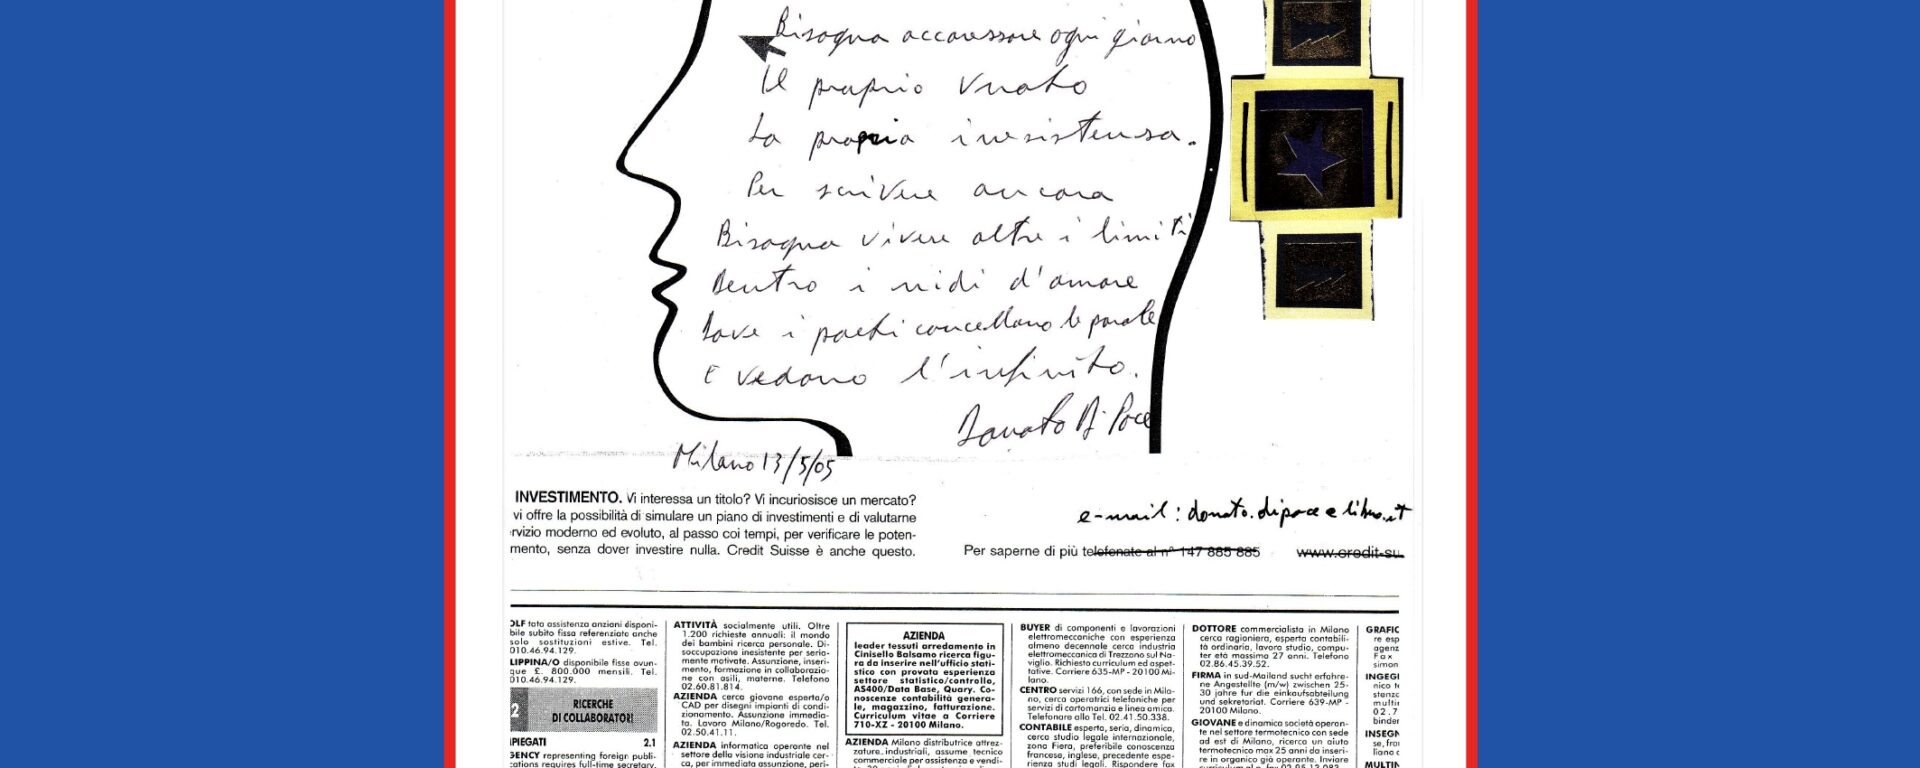 Bisogna accarezzare ogni giorno
Il proprio vuoto
La propria inesistenza.
Per scrivere ancora
Bisogna vivere oltre i limiti
Dentro i nidi d'amore
Dove i poeti cancellano le parole
E vedono l'infinito.
Donato Di Poce
Milano 13/5/05
INVESTIMENTO. Vi interessa un titolo? Vi incuriosisce un mercato?
vi offre la possibilità di simulare un piano di investimenti e di valutarne
rvizio moderno ed evoluto, al passo coi tempi, per verificare le poten-
mento, senza dover investire nulla. Credit Suisse è anche questo.
e-mail: donato.dipoce e libero.it
Per saperne di più telefonate al n° 147 885 885 www.credit-su
OLF tata assistenza anziani disponi-
bile subito fissa referenziata anche
solo sostituzioni estive. Tel.
010.46.94.129.
LIPPINA/O disponibile fisse ovun-
que £. 800.000 mensili. Tel.
010.46.94.129.
2 RICERCHE
DI COLLABORATORI
PIEGATI 2.1
GENCY representing foreign publi-
cations requires full-time secretary.
ATTIVITÀ socialmente utili. Oltre
1.200 richieste annuali: il mondo
dei bambini ricerca personale. Di-
soccupazione inesistente per seria-
mente motivate. Assunzione, inseri-
mento, formazione in collaborazio-
ne con asili, materne. Telefono
02.60.81.814.
AZIENDA cerca giovane esperta/o
CAD per disegni impianti di condi-
zionamento. Assunzione immedia-
ta. Lavoro Milano/Rogoredo. Tel.
02.50.41.11.
AZIENDA informatica operante nel
settore della visione industriale cer-
ca, per immediata assunzione, peri-
AZIENDA
leader tessuti arredamento in
Cinisello Balsamo ricerca figu-
ra da inserire nell'ufficio stati-
stico con provata esperienza
settore statistico/controllo,
AS400/Data Base, Quary. Co-
noscenze contabilità genera-
le, magazzino, fatturazione.
Curriculum vitae a Corriere
710-XZ - 20100 Milano.
AZIENDA Milano distributrice attrez-
zature industriali, assume tecnico
commerciale per assistenza e vendi-
BUYER di componenti e lavorazioni
elettromeccaniche con esperienza
almeno decennale cerca industria
elettromeccanica di Trezzano sul Na-
viglio. Richiesto curriculum ed aspet-
tative. Corriere 635-MP - 20100 Mi-
lano.
CENTRO servizi 166, con sede in Mila-
no, cerca operatrici telefoniche per
servizi di cartomanzia e linea amica.
Telefonare allo Tel. 02.41.50.338.
CONTABILE esperto, seria, dinamica,
cerca studio legale internazionale,
zona Fiera, preferibile conoscenza
francese, inglese, precedente espe-
rienza studi legali. Rispondere fax
DOTTORE commercialista in Milano
cerca ragioniera, esperta contabili-
tà ordinaria, lavoro studio, compu-
ter età massima 27 anni. Telefono
02.86.45.39.52.
FIRMA in sud-Mailand sucht erfahre-
ne Angestellte (m/w) zwischen 25-
30 jahre fur die einkaufsabteilung
und sekretariat. Corriere 639-MP -
20100 Milano.
GIOVANE e dinamica società operan-
te nel settore termotecnico con sede
ad est di Milano, ricerca un aiuto
termotecnico max 25 anni da inseri-
re in organico già operante. Inviare
GRAFIC
re esp
agenz
Fax
simon
INGEGI
nico te
stenza
multi
02.7
binder
INSEGN
se, fra
liano c
MULTIN